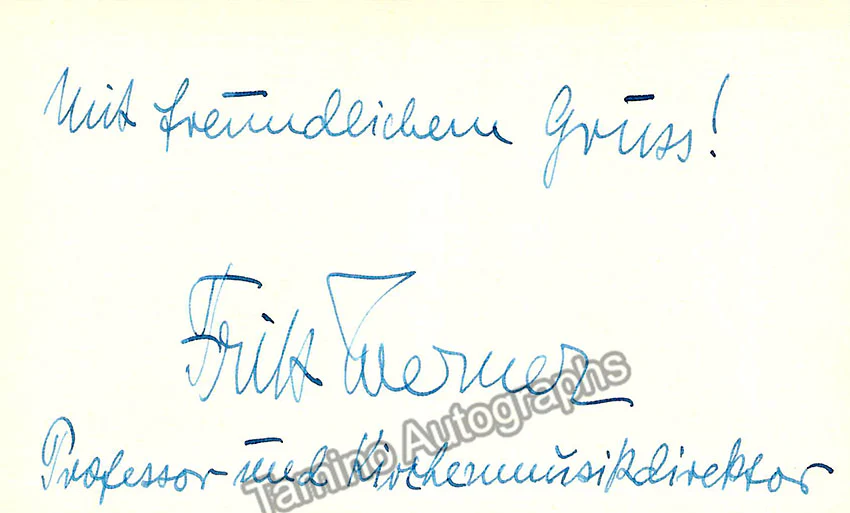 Mit freundlichem Gruss!
Fritz Werner
Professor und Kirchenmusikdirektor
Tamino Autographs